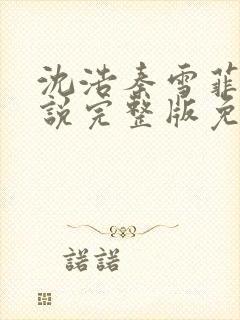 沈浩秦雪菲
說完整版免
諾諾